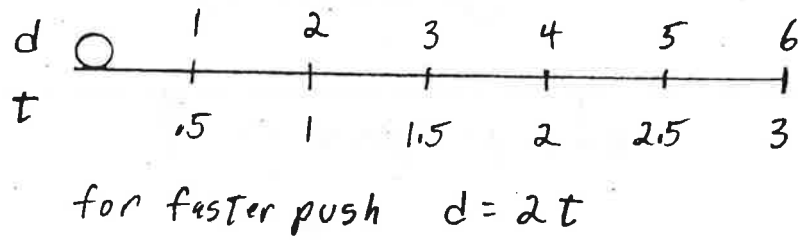 d 1 2 3 4 5 6
t .5 1 1.5 2 2.5 3
for faster push d = 2t